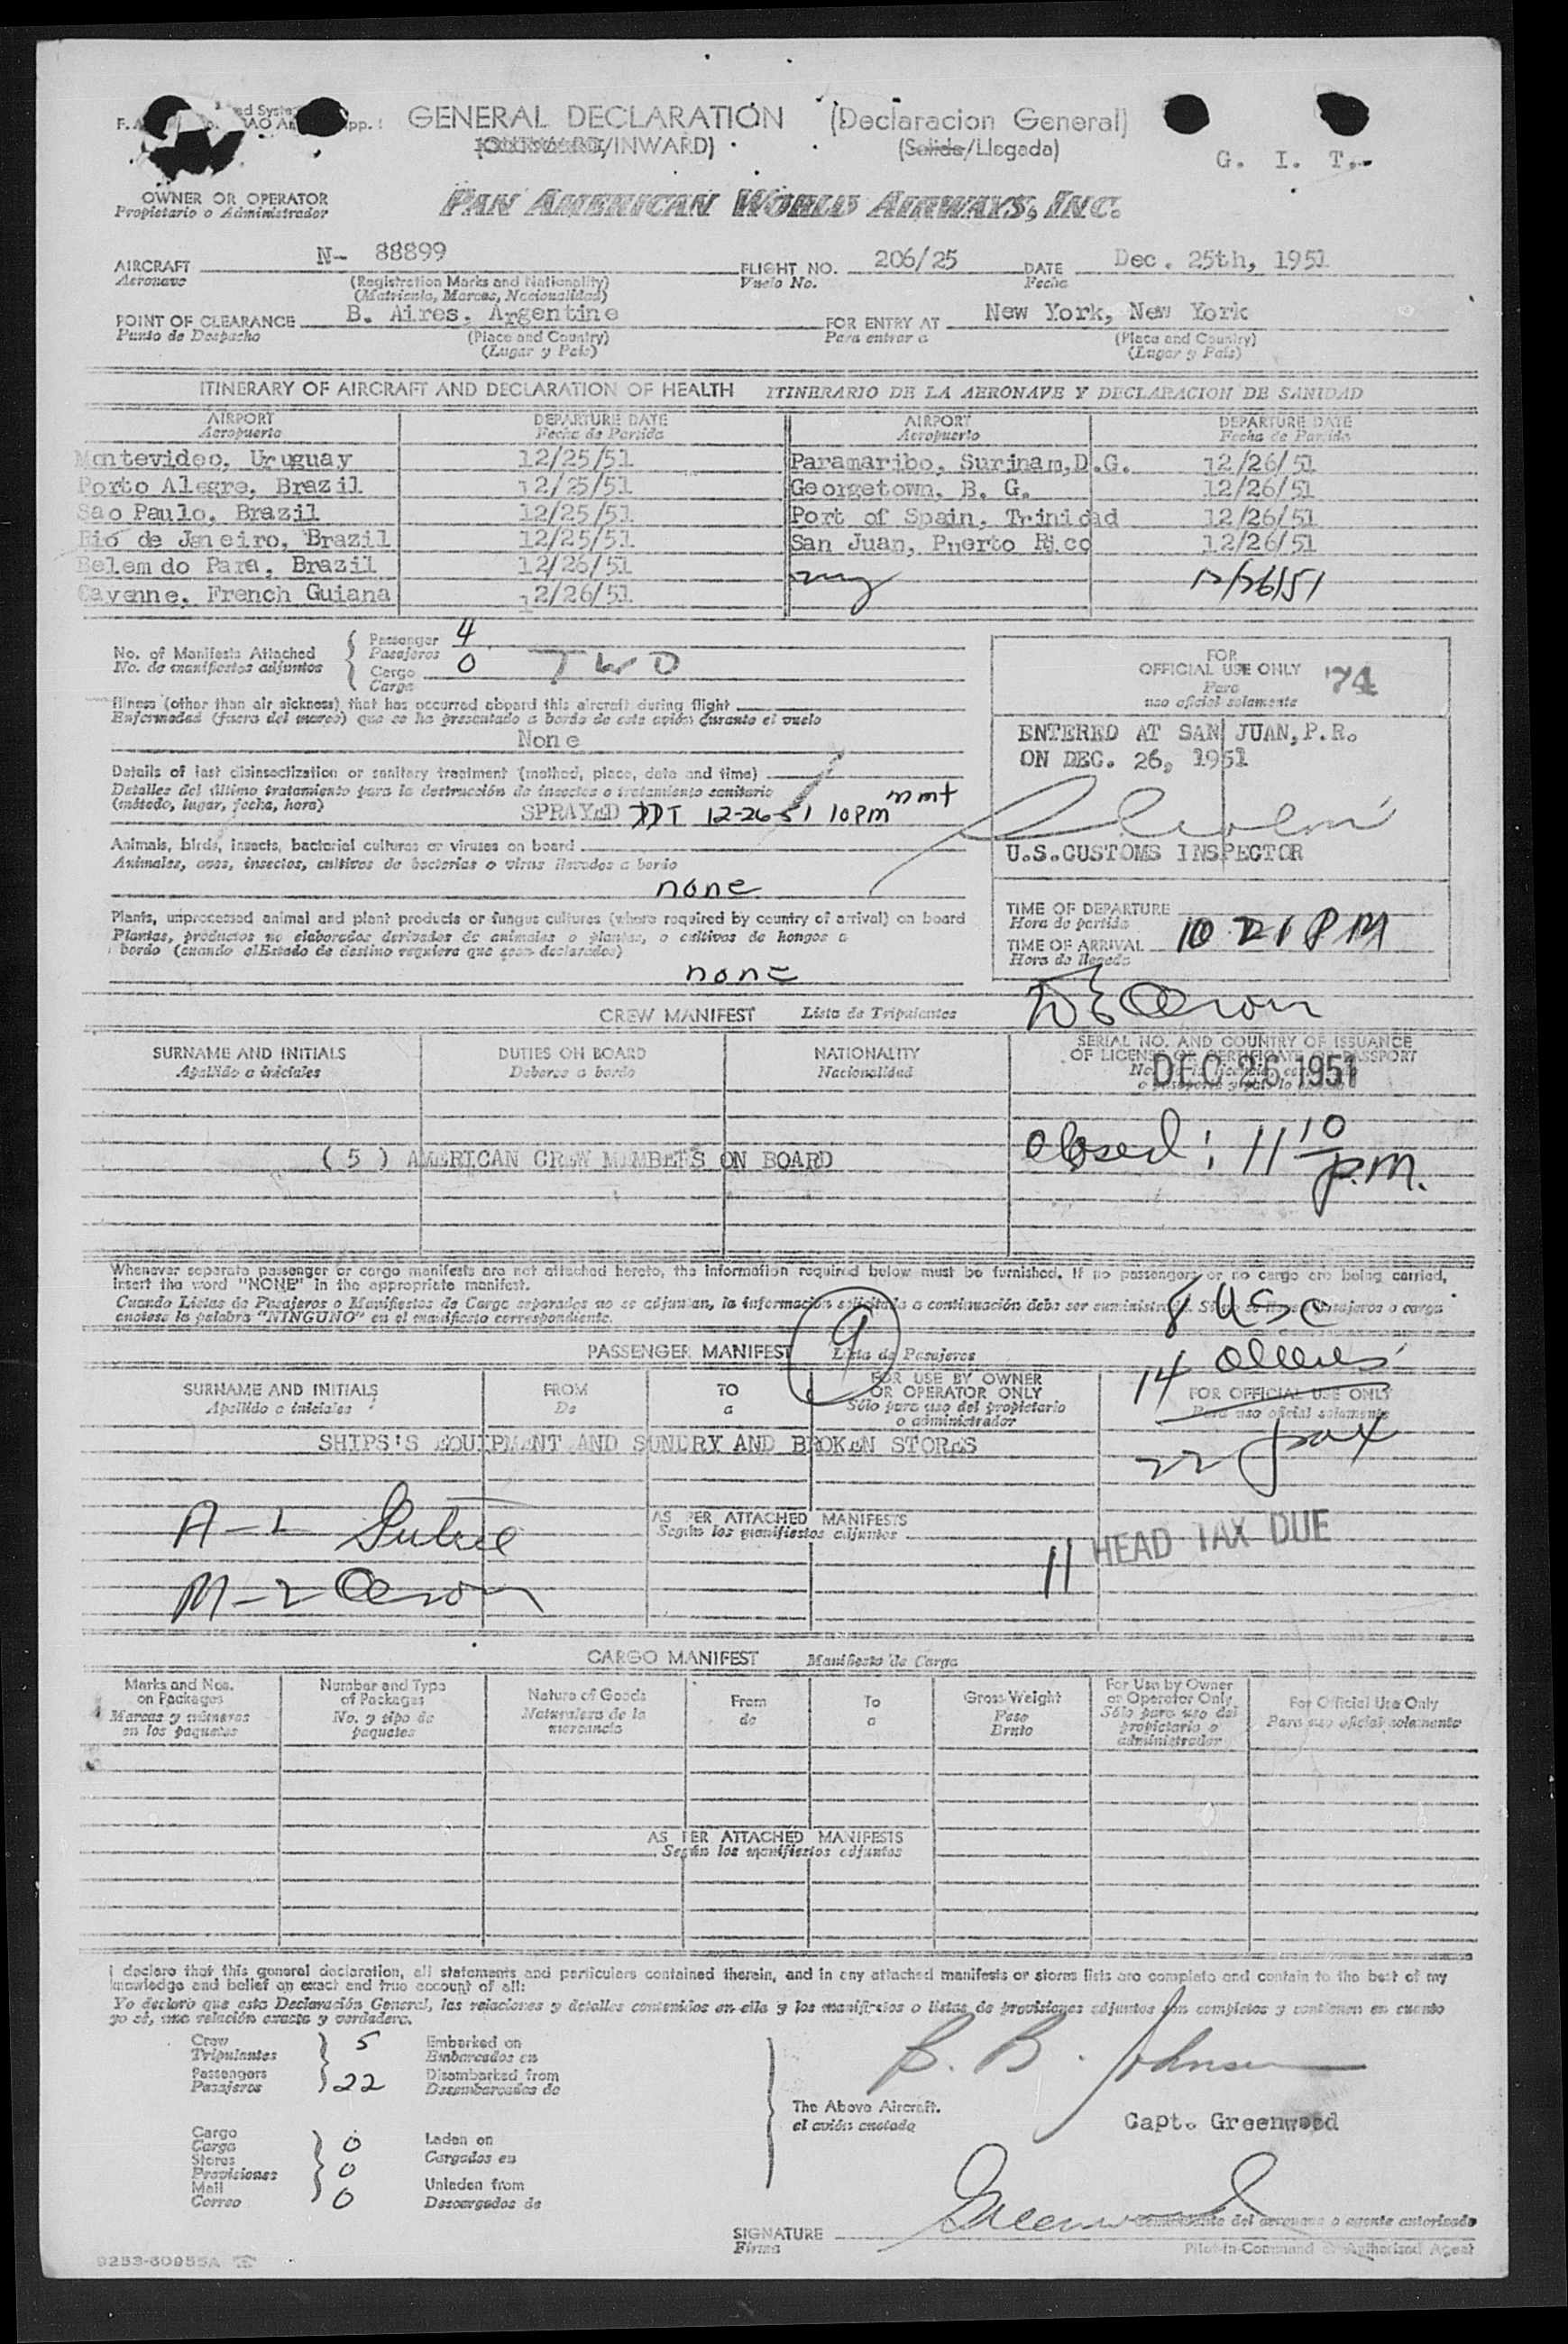 GENERAL DECLARATION (Declaracion General)
(OUTWARD/INWARD) (Salida/Llegada)
G. I. T.
OWNER OR OPERATOR
Propietario o Administrador
PAN AMERICAN WORLD AIRWAYS, INC.
AIRCRAFT N- 88899 FLIGHT NO. 206/25 DATE Dec. 25th, 1951
Aeronave (Registration Marks and Nationality) Vuelo No. Fecha
(Matricula, Marcas, Nacionalidad)
POINT OF CLEARANCE B. Aires, Argentine FOR ENTRY AT New York, New York
Punto de Despacho (Place and Country) Para entrar a (Place and Country)
(Lugar y Pais) (Lugar y Pais)
ITINERARY OF AIRCRAFT AND DECLARATION OF HEALTH ITINERARIO DE LA AERONAVE Y DECLARACION DE SANIDAD
AIRPORT DEPARTURE DATE AIRPORT DEPARTURE DATE
Aeropuerto Fecha de Partida Aeropuerto Fecha de Partida
Montevideo, Uruguay 12/25/51 Paramaribo, Surinam,D.G. 12/26/51
Porto Alegre, Brazil 12/25/51 Georgetown, B. G. 12/26/51
Sao Paulo, Brazil 12/25/51 Port of Spain, Trinidad 12/26/51
Rio de Janeiro, Brazil 12/25/51 San Juan, Puerto Rico 12/26/51
Belem do Para, Brazil 12/26/51 12/26/51
Cayenne, French Guiana 12/26/51
No. of Manifests Attached Passenger 4
No. de manifiestos adjuntos Pasajeros
Cargo 0 TWO
Carga
FOR
OFFICIAL USE ONLY 74
Para
uso oficial solamente
Illness (other than air sickness) that has occurred aboard this aircraft during flight
Enfermedad (fuera del mareo) que se ha presentado a bordo de este avión durante el vuelo
None
ENTERED AT SAN JUAN,P.R.
ON DEC. 26, 1951
Details of last disinsectization or sanitary treatment (method, place, date and time)
Detalles del último tratamiento para la destrucción de insectos o tratamiento sanitario
(método, lugar, fecha, hora)
SPRAYED DDT 12-26-51 10PM
Animals, birds, insects, bacterial cultures or viruses on board
Animales, aves, insectos, cultivos de bacterias o virus llevados a bordo
none
U.S.CUSTOMS INSPECTOR
Plants, unprocessed animal and plant products or fungus cultures (where required by country of arrival) on board
Plantas, productos no elaborados derivados de animales o plantas, o cultivos de hongos a
bordo (cuando el Estado de destino requiere que sean declarados)
none
TIME OF DEPARTURE
Hora de partida
TIME OF ARRIVAL 10 21 PM
Hora de llegada
CREW MANIFEST Lista de Tripulantes
SURNAME AND INITIALS DUTIES ON BOARD NATIONALITY SERIAL NO. AND COUNTRY OF ISSUANCE
OF LICENSE OR CERTIFICATE OR PASSPORT
Apellido e iniciales Deberes a bordo Nacionalidad
DEC 26 1951
closed: 11 10 p.m.
( 5 ) AMERICAN CREW MEMBERS ON BOARD
Whenever separate passenger or cargo manifests are not attached hereto, the information required below must be furnished. If no passengers or no cargo are being carried,
insert the word "NONE" in the appropriate manifest.
Cuando Listas de Pasajeros o Manifiestos de Carga separados no se adjuntan, la información solicitada a continuación debe ser suministrada. Si no se llevan pasajeros o carga
anótese la palabra "NINGUNO" en el manifiesto correspondiente.
8 USC
9
PASSENGER MANIFEST Lista de Pasajeros
14 aliens
SURNAME AND INITIALS FROM TO FOR USE BY OWNER
OR OPERATOR ONLY FOR OFFICIAL USE ONLY
Apellido e iniciales De a Sólo para uso del propietario
o administrador Para uso oficial solamente
SHIPS'S EQUIPMENT AND SUNDRY AND BROKEN STORES
22 pax
A-L
AS PER ATTACHED MANIFESTS
Según los manifiestos adjuntos
11 HEAD TAX DUE
M-Z
CARGO MANIFEST Manifiesto de Carga
Marks and Nos.
on Packages
Marcas y números
en los paquetes
Number and Type
of Packages
No. y tipo de
paquetes
Nature of Goods
Naturaleza de la
mercancía
From
de
To
a
Gross Weight
Peso
Bruto
For Use by Owner
or Operator Only
Sólo para uso del
propietario o
administrador
For Official Use Only
Para uso oficial solamente
AS PER ATTACHED MANIFESTS
Según los manifiestos adjuntos
I declare that this general declaration, all statements and particulars contained therein, and in any attached manifests or stores lists are complete and contain to the best of my
knowledge and belief an exact and true account of all:
Yo declaro que esta Declaración General, las relaciones y detalles contenidos en ella y los manifiestos o listas de provisiones adjuntos son completos y contienen en cuanto
yo sé, una relación exacta y verdadera.
Crew 5 Embarked on
Tripulantes Embarcados en
Passengers 22 Disembarked from
Pasajeros Desembarcados de
B. B. Johnson
The Above Aircraft.
el avión anotado
Capt. Greenwood
Cargo 0 Laden on
Carga Cargados en
Stores 0
Provisiones
Mail 0 Unladen from
Correo Descargados de
SIGNATURE Greenwood
Firma
Comandante del aeronave o agente autorizado
Pilot-in-Command or Authorized Agent
9253-60955A